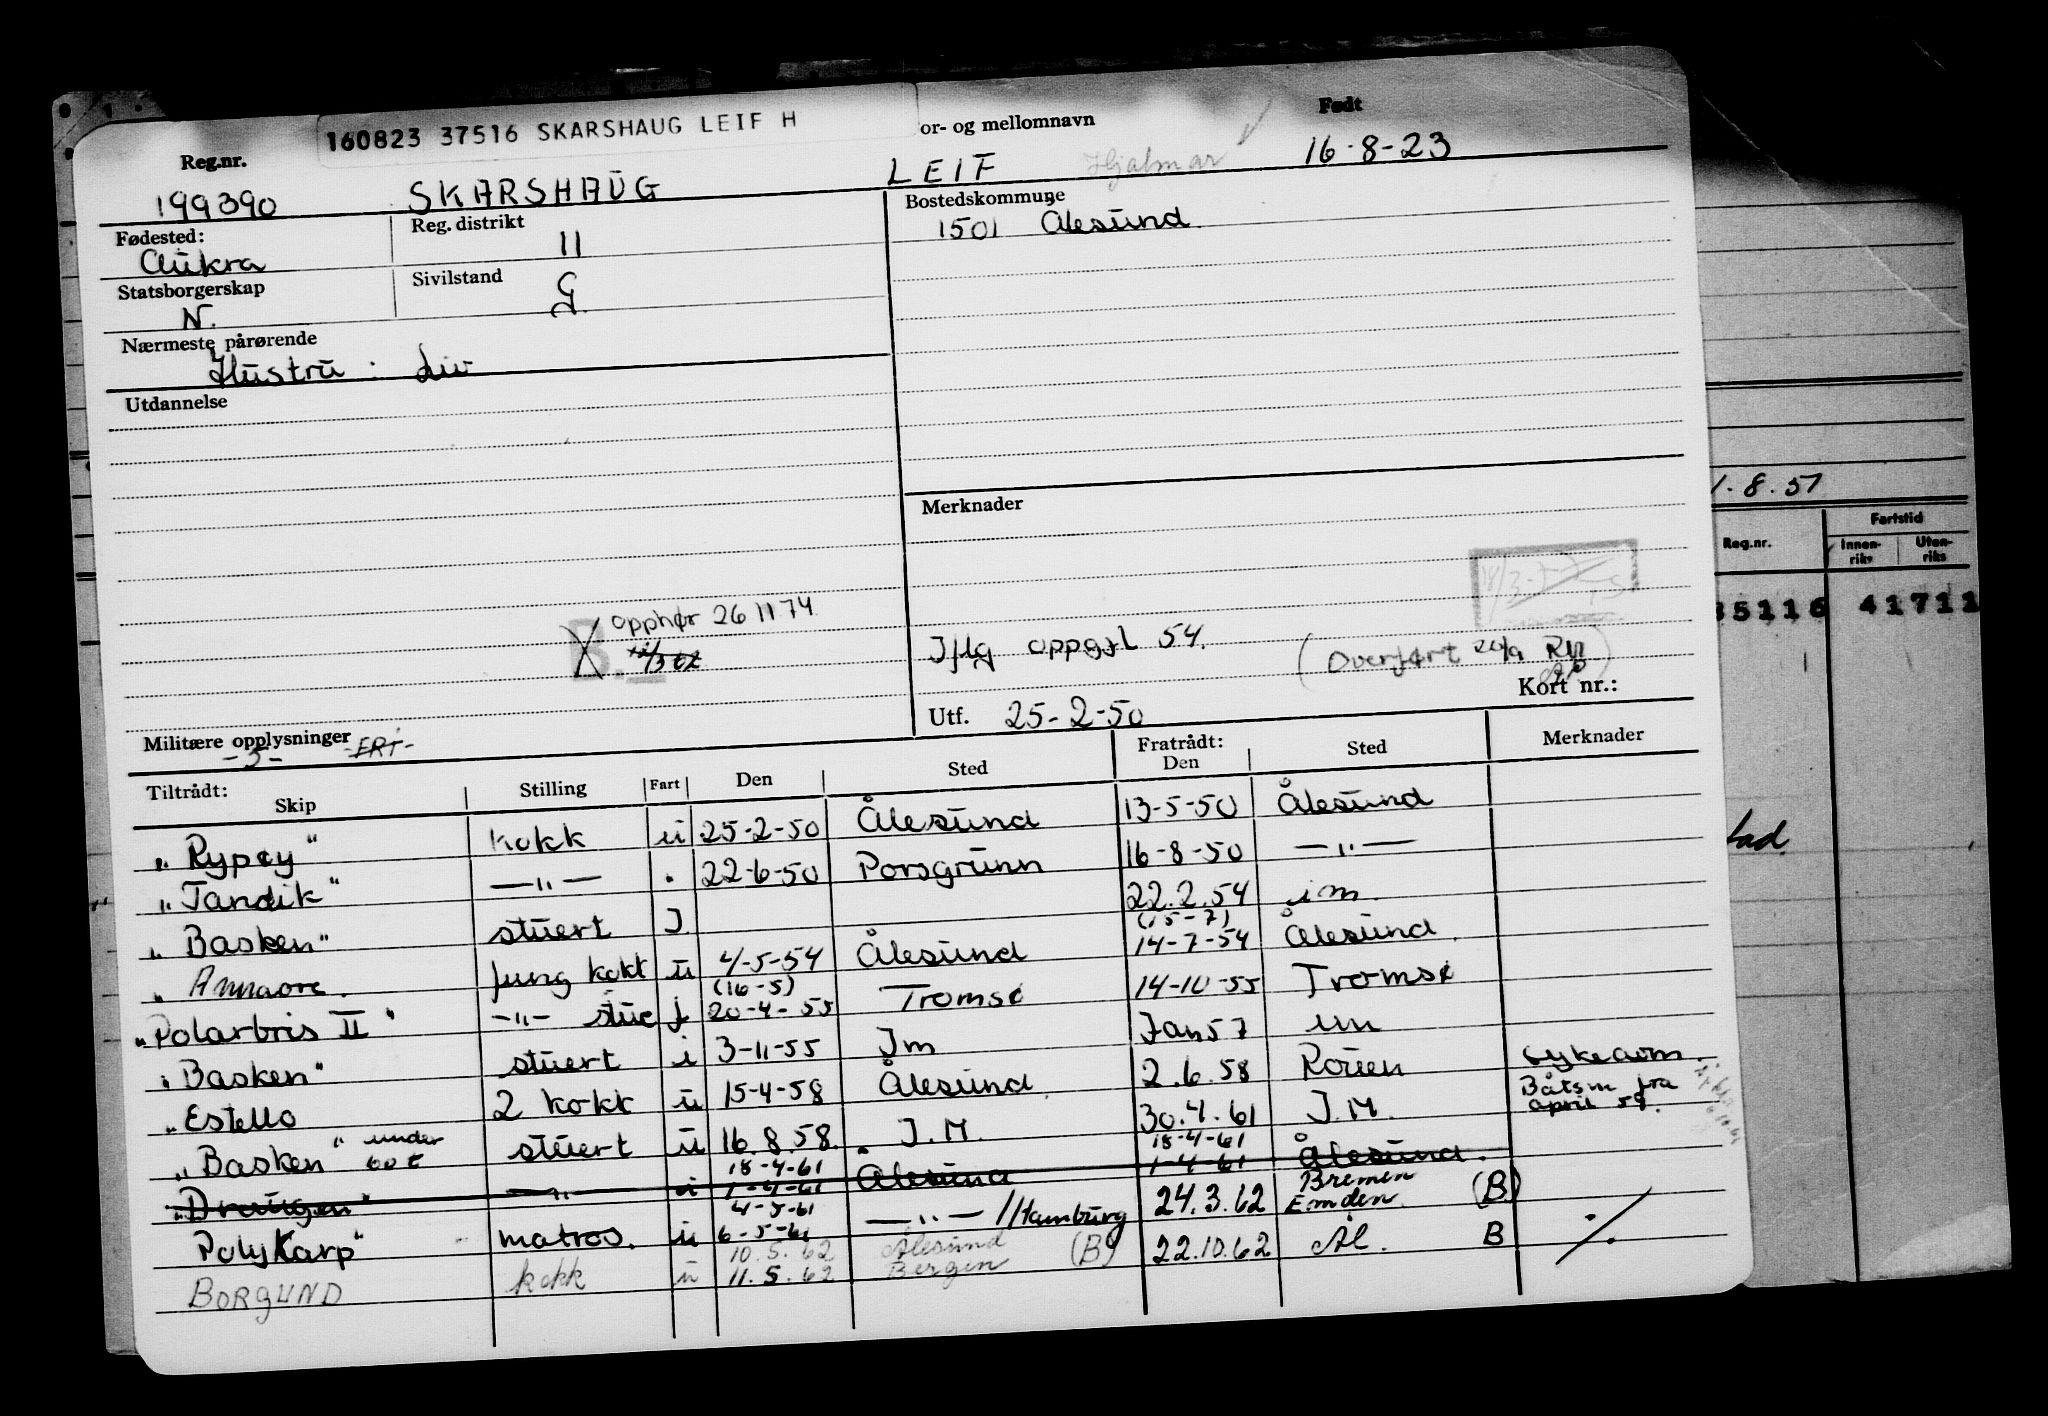 160823 37516 SKARSHAUG LEIF H
Reg.nr. or- og mellomnavn Født
199390 SKARSHAUG LEIF Hjalmar 16-8-23
Fødested: Reg. distrikt Bostedskommune
Aukra 11 1501 Ålesund
Statsborgerskap Sivilstand
N. G
Nærmeste pårørende
Hustru : Liv
Utdannelse
1.8.51
Merknader
Fartstid
Reg.nr. Innen-riks Uten-riks
35116 41711
Opphør 26 11 74
B.
Iflg oppg 54. (Overført 20/9
Kort nr.:
Utf. 25-2-50
Militære opplysninger
-5- -ERT-
Tiltrådt: Fratrådt:
Skip Stilling Fart Den Sted Den Sted Merknader
"Rypøy" kokk u 25-2-50 Ålesund 13-5-50 Ålesund
"Tandik" —"— . 22-6-50 Porsgrunn 16-8-50 —"—
"Basken" stuert J 22.2.54 im.
(15-7)
" Annaore. Jung kokk u 4-5-54 Ålesund 14-7-54 Ålesund.
(16-5)
"Polarbris II" —"— stue j 20-4-55 Tromsø 14-10-55 Tromsø
"Basken" stuert i 3-11-55 Im Jan 57 im
"Estello 2 kokk u 15-4-58 Ålesund. 2.6.58 Rouen sykeavm.
"Basken" under 60 t stuert u 16.8.58. J.M. 30.4.61 J.M. Båtsm fra april 59.
18-4-61 18-4-61
"Draugen" —"— i 1-4-61 Ålesund 1-4-61 Ålesund.
4-5-61 Bremen
Polykarp" matros. u 6-5-61 —"— //Hamburg 24.3.62 Emden. (B)
10.5.62 Ålesund
BORGUND kokk u 11.5.62 Bergen (B) 22.10.62 Ål. B ./.